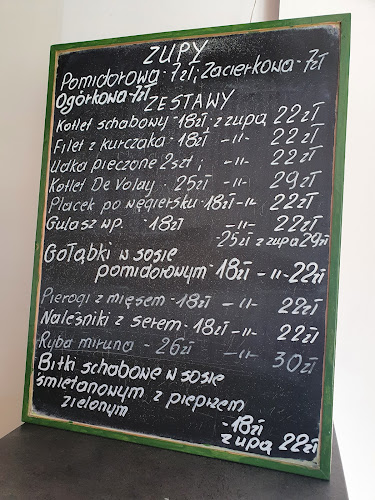 ZUPY
Pomidorowa - 7zł; Zacierkowa - 7zł
Ogórkowa 7zł
ZESTAWY
Kotlet schabowy - 18zł z zupą 22zł
Filet z kurczaka 18zł -11- 22zł
Udka pieczone 2szt; -11- 22zł
Kotlet De Volay - 25zł -11- 29zł
Placek po węgiersku - 18zł -11- 22zł
Gulasz wp. - 18zł -11- 22zł
25zł z zupą 29zł
Gołąbki w sosie
pomidorowym - 18zł -11- 22zł
Pierogi z mięsem - 18zł -11- 22zł
Naleśniki z serem - 18zł -11- 22zł
Ryba miruna - 26zł -11- 30zł
Bitki schabowe w sosie
śmietanowym z pieprzem
zielonym
- 18zł
z zupą 22zł